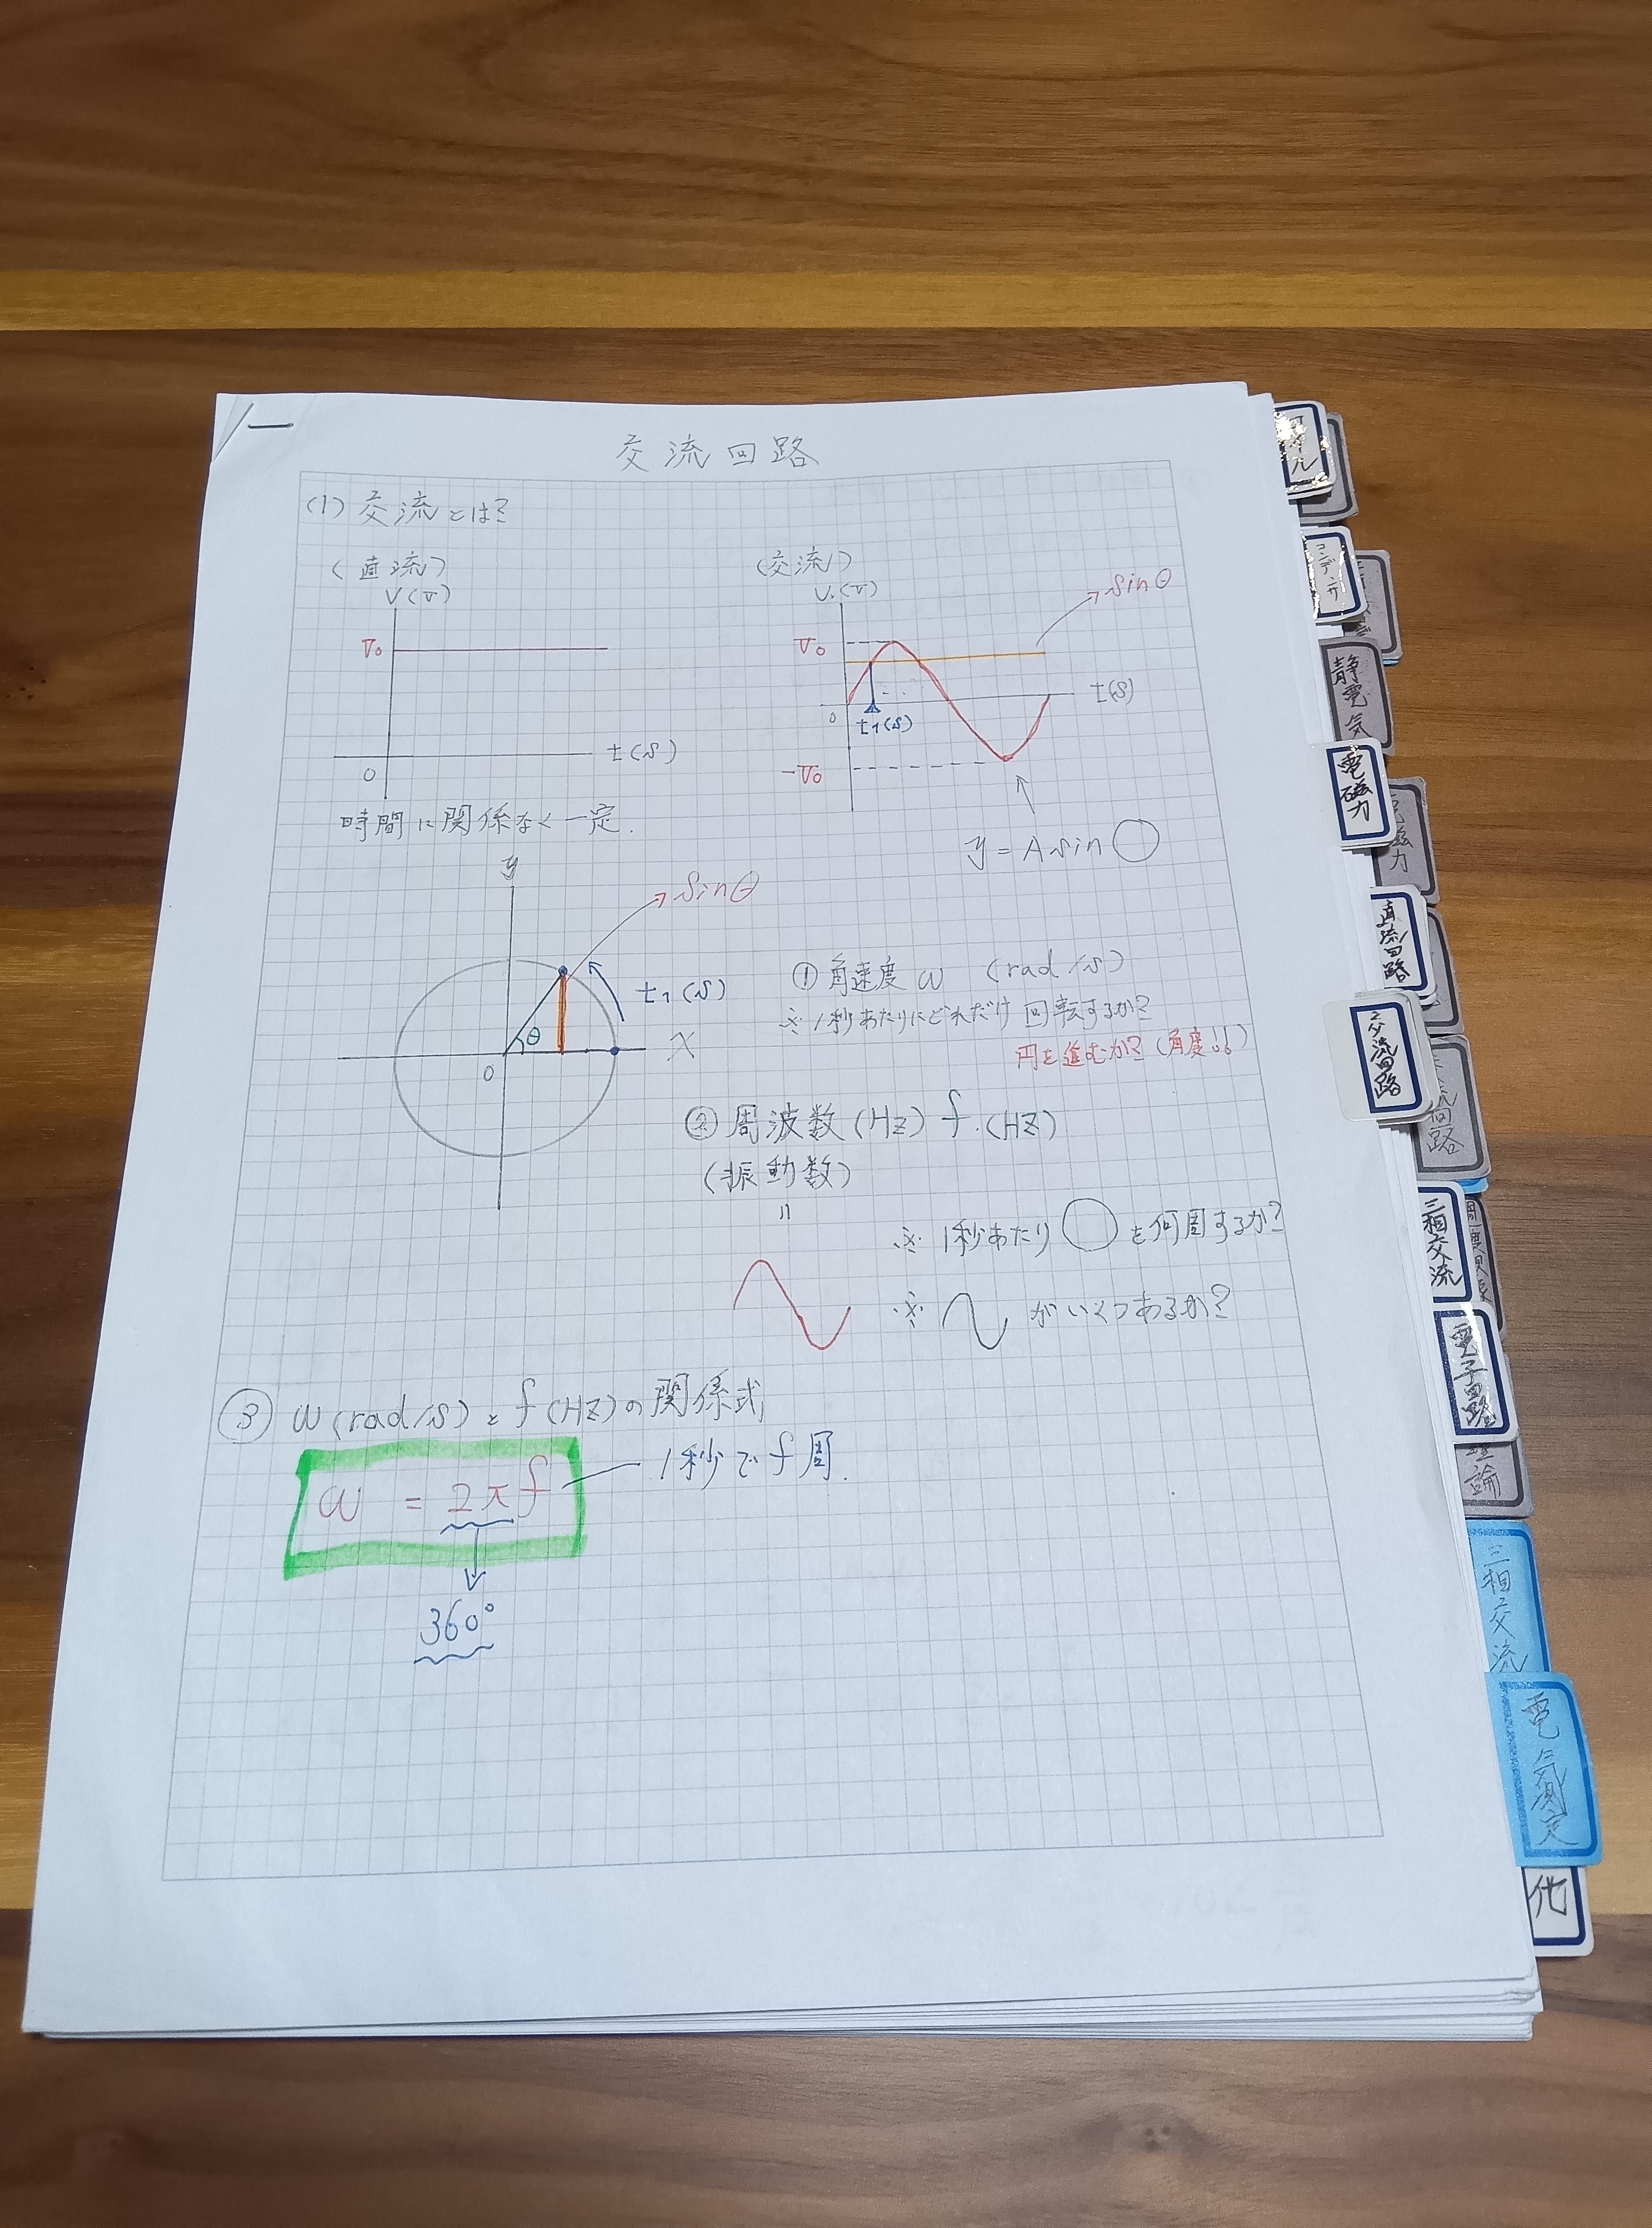 交流回路
(1) 交流とは?
(直流)
V(V)
V₀
t(s)
0
時間に関係なく一定.
(交流)
V.(V)
sinθ
V₀
t(s)
0
t₁(s)
-V₀
y=Asin○
y
sinθ
t₁(s)
θ
x
0
① 角速度 ω (rad/s)
※ 1秒あたりにどれだけ回転するか?
円を進むか?(角度!!)
② 周波数(Hz) f.(Hz)
(振動数)
=
※ 1秒あたり○を何周するか?
※ がいくつあるか?
③ ω(rad/s)とf(Hz)の関係式
ω = 2πf
1秒でf周.
360°
コイル
コンデンサ
静電気
電磁力
直流回路
交流回路
三相交流
電子回路
理論
三相交流
電気測定
化